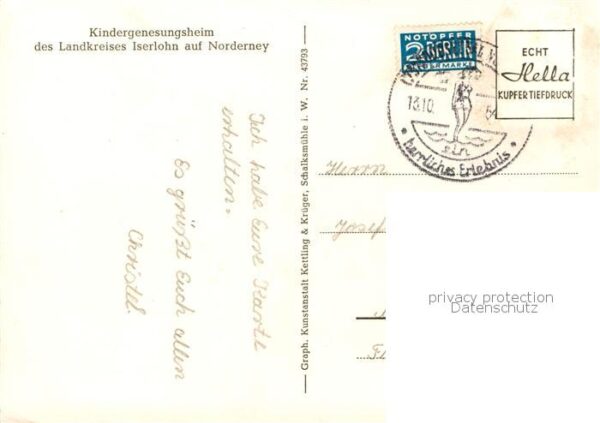 Kindergenesungsheim
des Landkreises Iserlohn auf Norderney
Ich habe Eure Karte
erhalten.
Es grüßt Euch allen
Christel.
Graph. Kunstanstalt Kettling & Krüger, Schalksmühle i. W. Nr. 43793
NOTOPFER
2 BERLIN
STEUERMARKE
13.10.
ein
herrliches Erlebnis
ECHT
Hella
KUPFERTIEFDRUCK
Herrn
Josef
privacy protection
Datenschutz